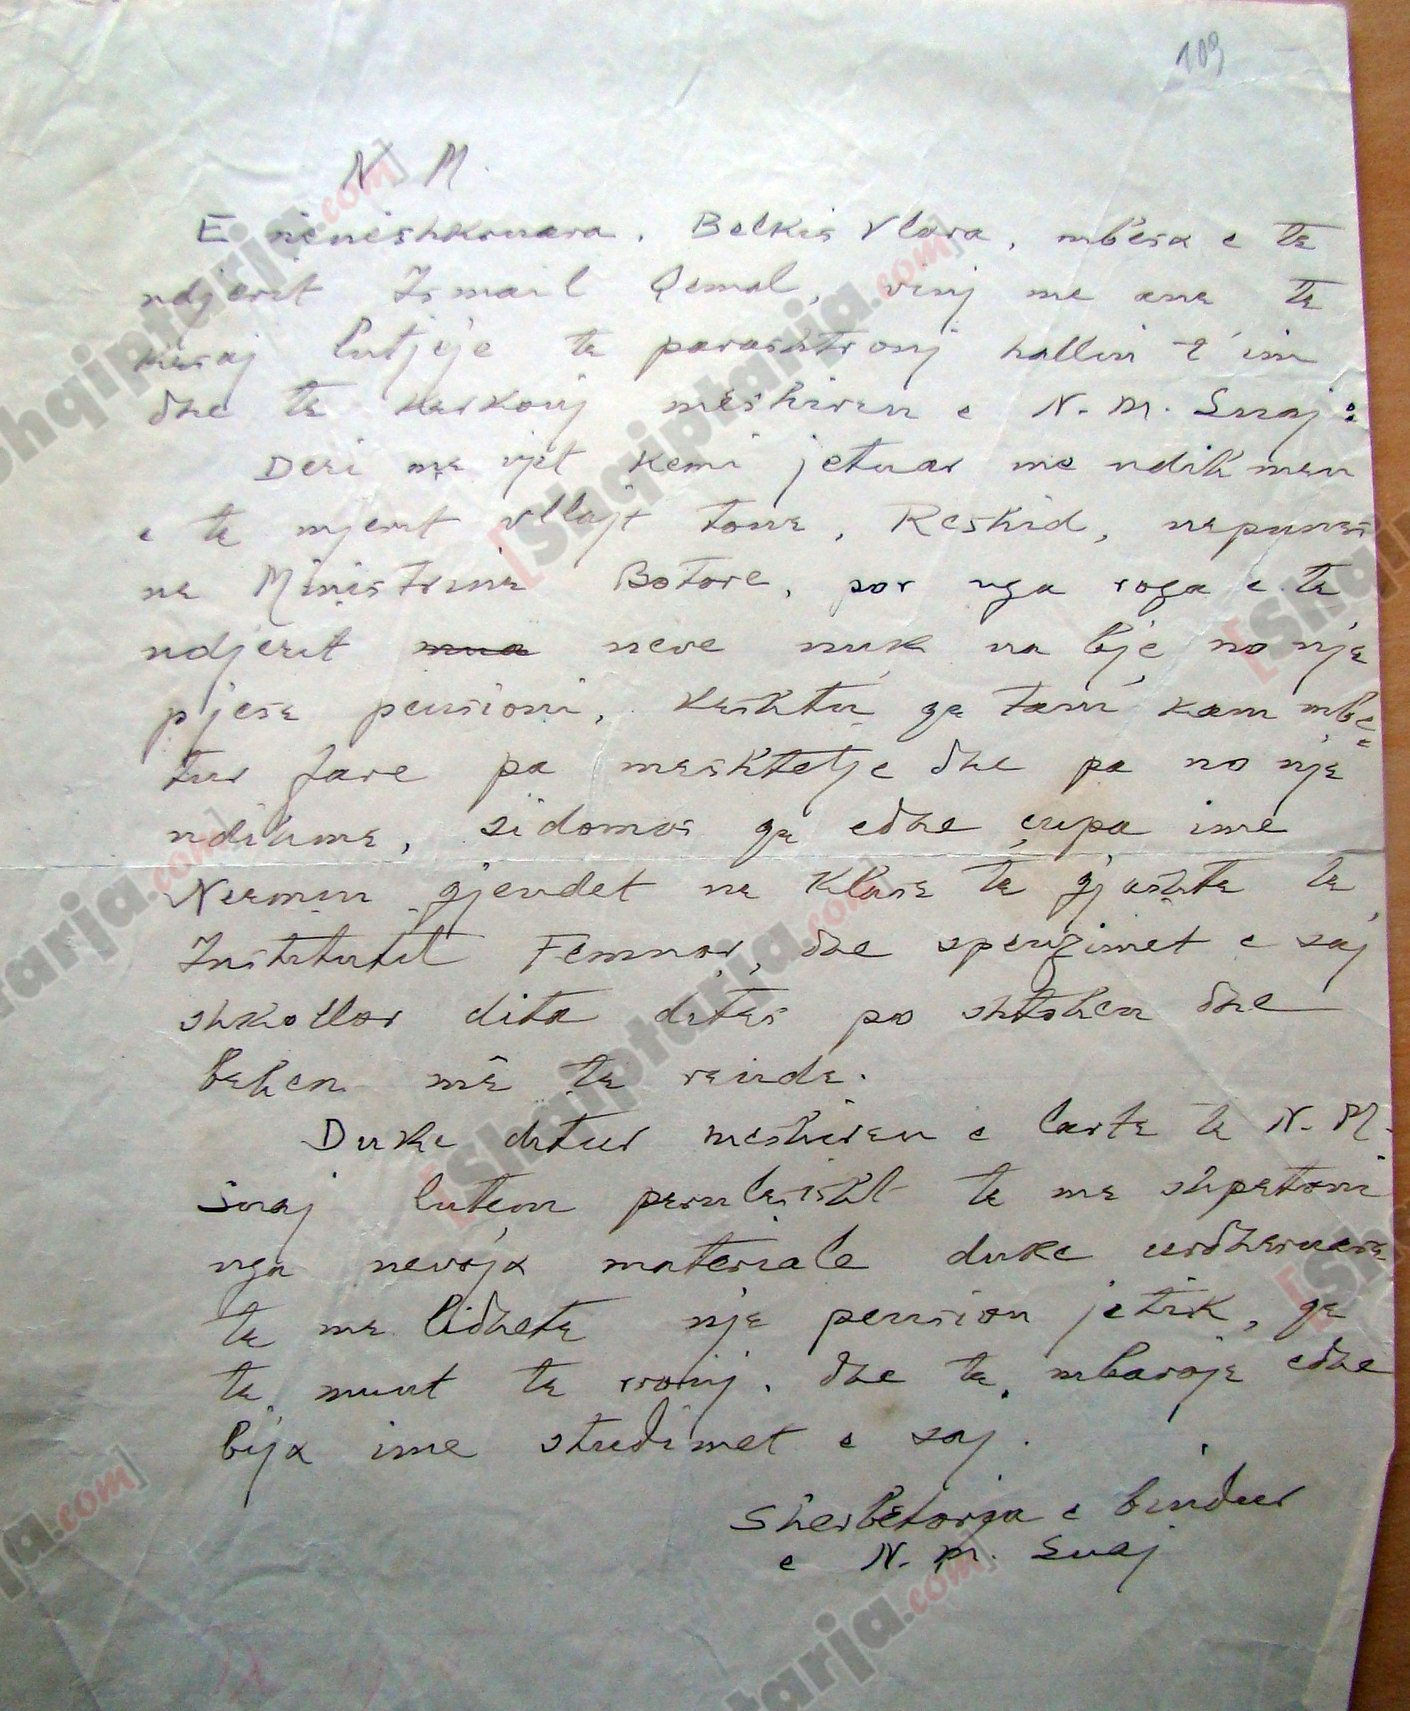 109
N. M.
E nënëshkruara, Belkis Vlora, mbesa e të
ndjerit Ismail Qemal, vinj me anë të
kësaj lutjeje të parashtronj hallin t'im
dhe të kërkonj mëshirën e N. M. Suaj:
Deri më vjet kemi jetuar me ndihmën
e të mjerit vllajt tonë, Reshid, nëpunës
në Ministrinë Botore, por nga roga e të
ndjerit mua neve nuk na bje no një
pjesë pensioni, kështu që tani kam mbe=
tur fare pa mështetje dhe pa no një
ndihmë, sidomos që edhe çupa ime
Nermin gjendet në klasë të gjashtë të
Institutit Femnor, dhe spenzimet e saj
shkollor dita ditës po shtohen dhe
bëhen më të rënda.
Duke ditur mëshirën e lartë të N. M.
Suaj lutem përulësisht të më shpëtoni
nga nevoja materiale duke urdhëruarë
të më lidhetë një pension jetik, që
të munt të rronj, dhe të mbarojë edhe
bija ime studimet e saj.
Shërbëtorja e bindur
e N. M. Suaj
[Shqiptarja.com]